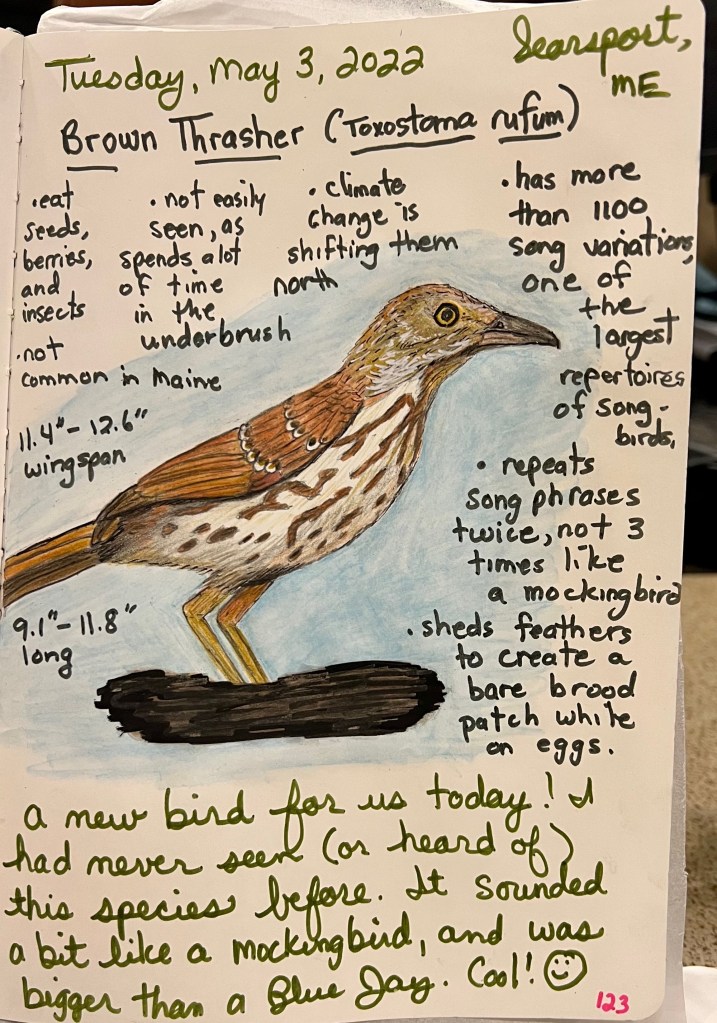 Tuesday, May 3, 2022
Searsport,
ME
Brown Thrasher (Toxostoma rufum)
• eat
seeds,
berries,
and
insects
• not
common in Maine
• not easily
seen, as
spends a lot
of time
in the
underbrush
• climate
change is
shifting them
north
• has more
than 1100
song variations,
one of
the
largest
repertoires
of song-
birds.
11.4"- 12.6"
wingspan
• repeats
song phrases
twice, not 3
times like
a mockingbird
9.1"- 11.8"
long
• sheds feathers
to create a
bare brood
patch white
on eggs.
A new bird for us today! I
had never seen (or heard of)
this species before. It sounded
a bit like a mockingbird, and was
bigger than a Blue Jay. Cool! ☺
123